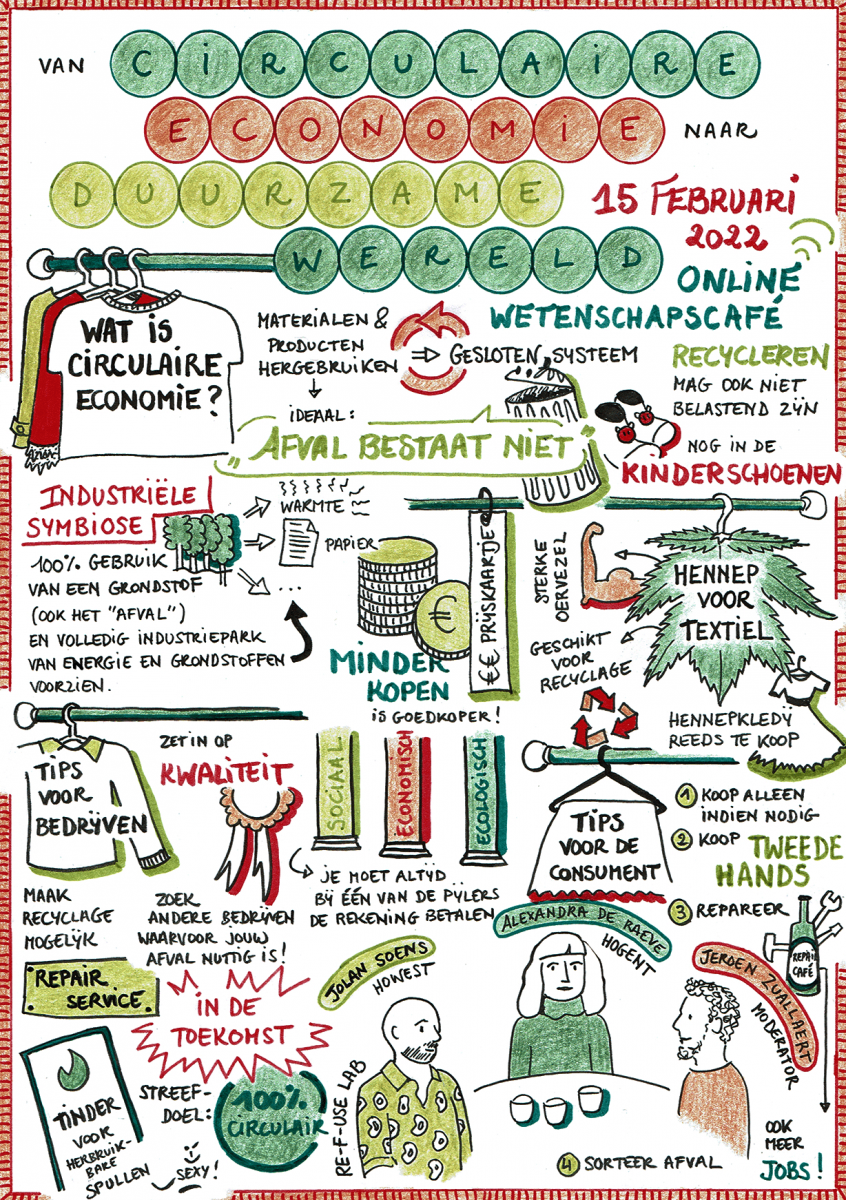 VAN CIRCULAIRE
ECONOMIE NAAR
DUURZAME
WERELD
15 FEBRUARI
2022
ONLINE
WETENSCHAPSCAFÉ
WAT IS
CIRCULAIRE
ECONOMIE?
MATERIALEN &
PRODUCTEN
HERGEBRUIKEN
⇒ GESLOTEN SYSTEEM
IDEAAL:
"AFVAL BESTAAT NIET"
RECYCLEREN
MAG OOK NIET
BELASTEND ZIJN
NOG IN DE
KINDERSCHOENEN
INDUSTRIËLE
SYMBIOSE
100% GEBRUIK
VAN EEN GRONDSTOF
(OOK HET "AFVAL")
EN VOLLEDIG INDUSTRIEPARK
VAN ENERGIE EN GRONDSTOFFEN
VOORZIEN.
WARMTE
PAPIER
...
€
€€ PRIJSKAARTJE
MINDER
KOPEN
IS GOEDKOPER!
STERKE
OERVEZEL
HENNEP
VOOR
TEXTIEL
GESCHIKT
VOOR
RECYCLAGE
HENNEPKLEDIJ
REEDS TE KOOP
TIPS
VOOR
BEDRIJVEN
ZET IN OP
KWALITEIT
MAAK
RECYCLAGE
MOGELIJK
ZOEK
ANDERE BEDRIJVEN
WAARVOOR JOUW
AFVAL NUTTIG IS!
SOCIAAL
ECONOMISCH
ECOLOGISCH
JE MOET ALTIJD
BIJ ÉÉN VAN DE PIJLERS
DE REKENING BETALEN
TIPS
VOOR DE
CONSUMENT
1 KOOP ALLEEN
INDIEN NODIG
2 KOOP TWEEDE
HANDS
3 REPAREER
REPAIR
CAFÉ
REPAIR
SERVICE
IN DE
TOEKOMST
TINDER
VOOR
HERBRUIK-
BARE
SPULLEN
SEXY!
STREEF-
DOEL:
100%
CIRCULAIR
JOLAN SOENS
HOWEST
RE-F-USE LAB
ALEXANDRA DE RAEVE
HOGENT
JEROEN ZUALLAERT
MODERATOR
4 SORTEER AFVAL
OOK
MEER
JOBS!